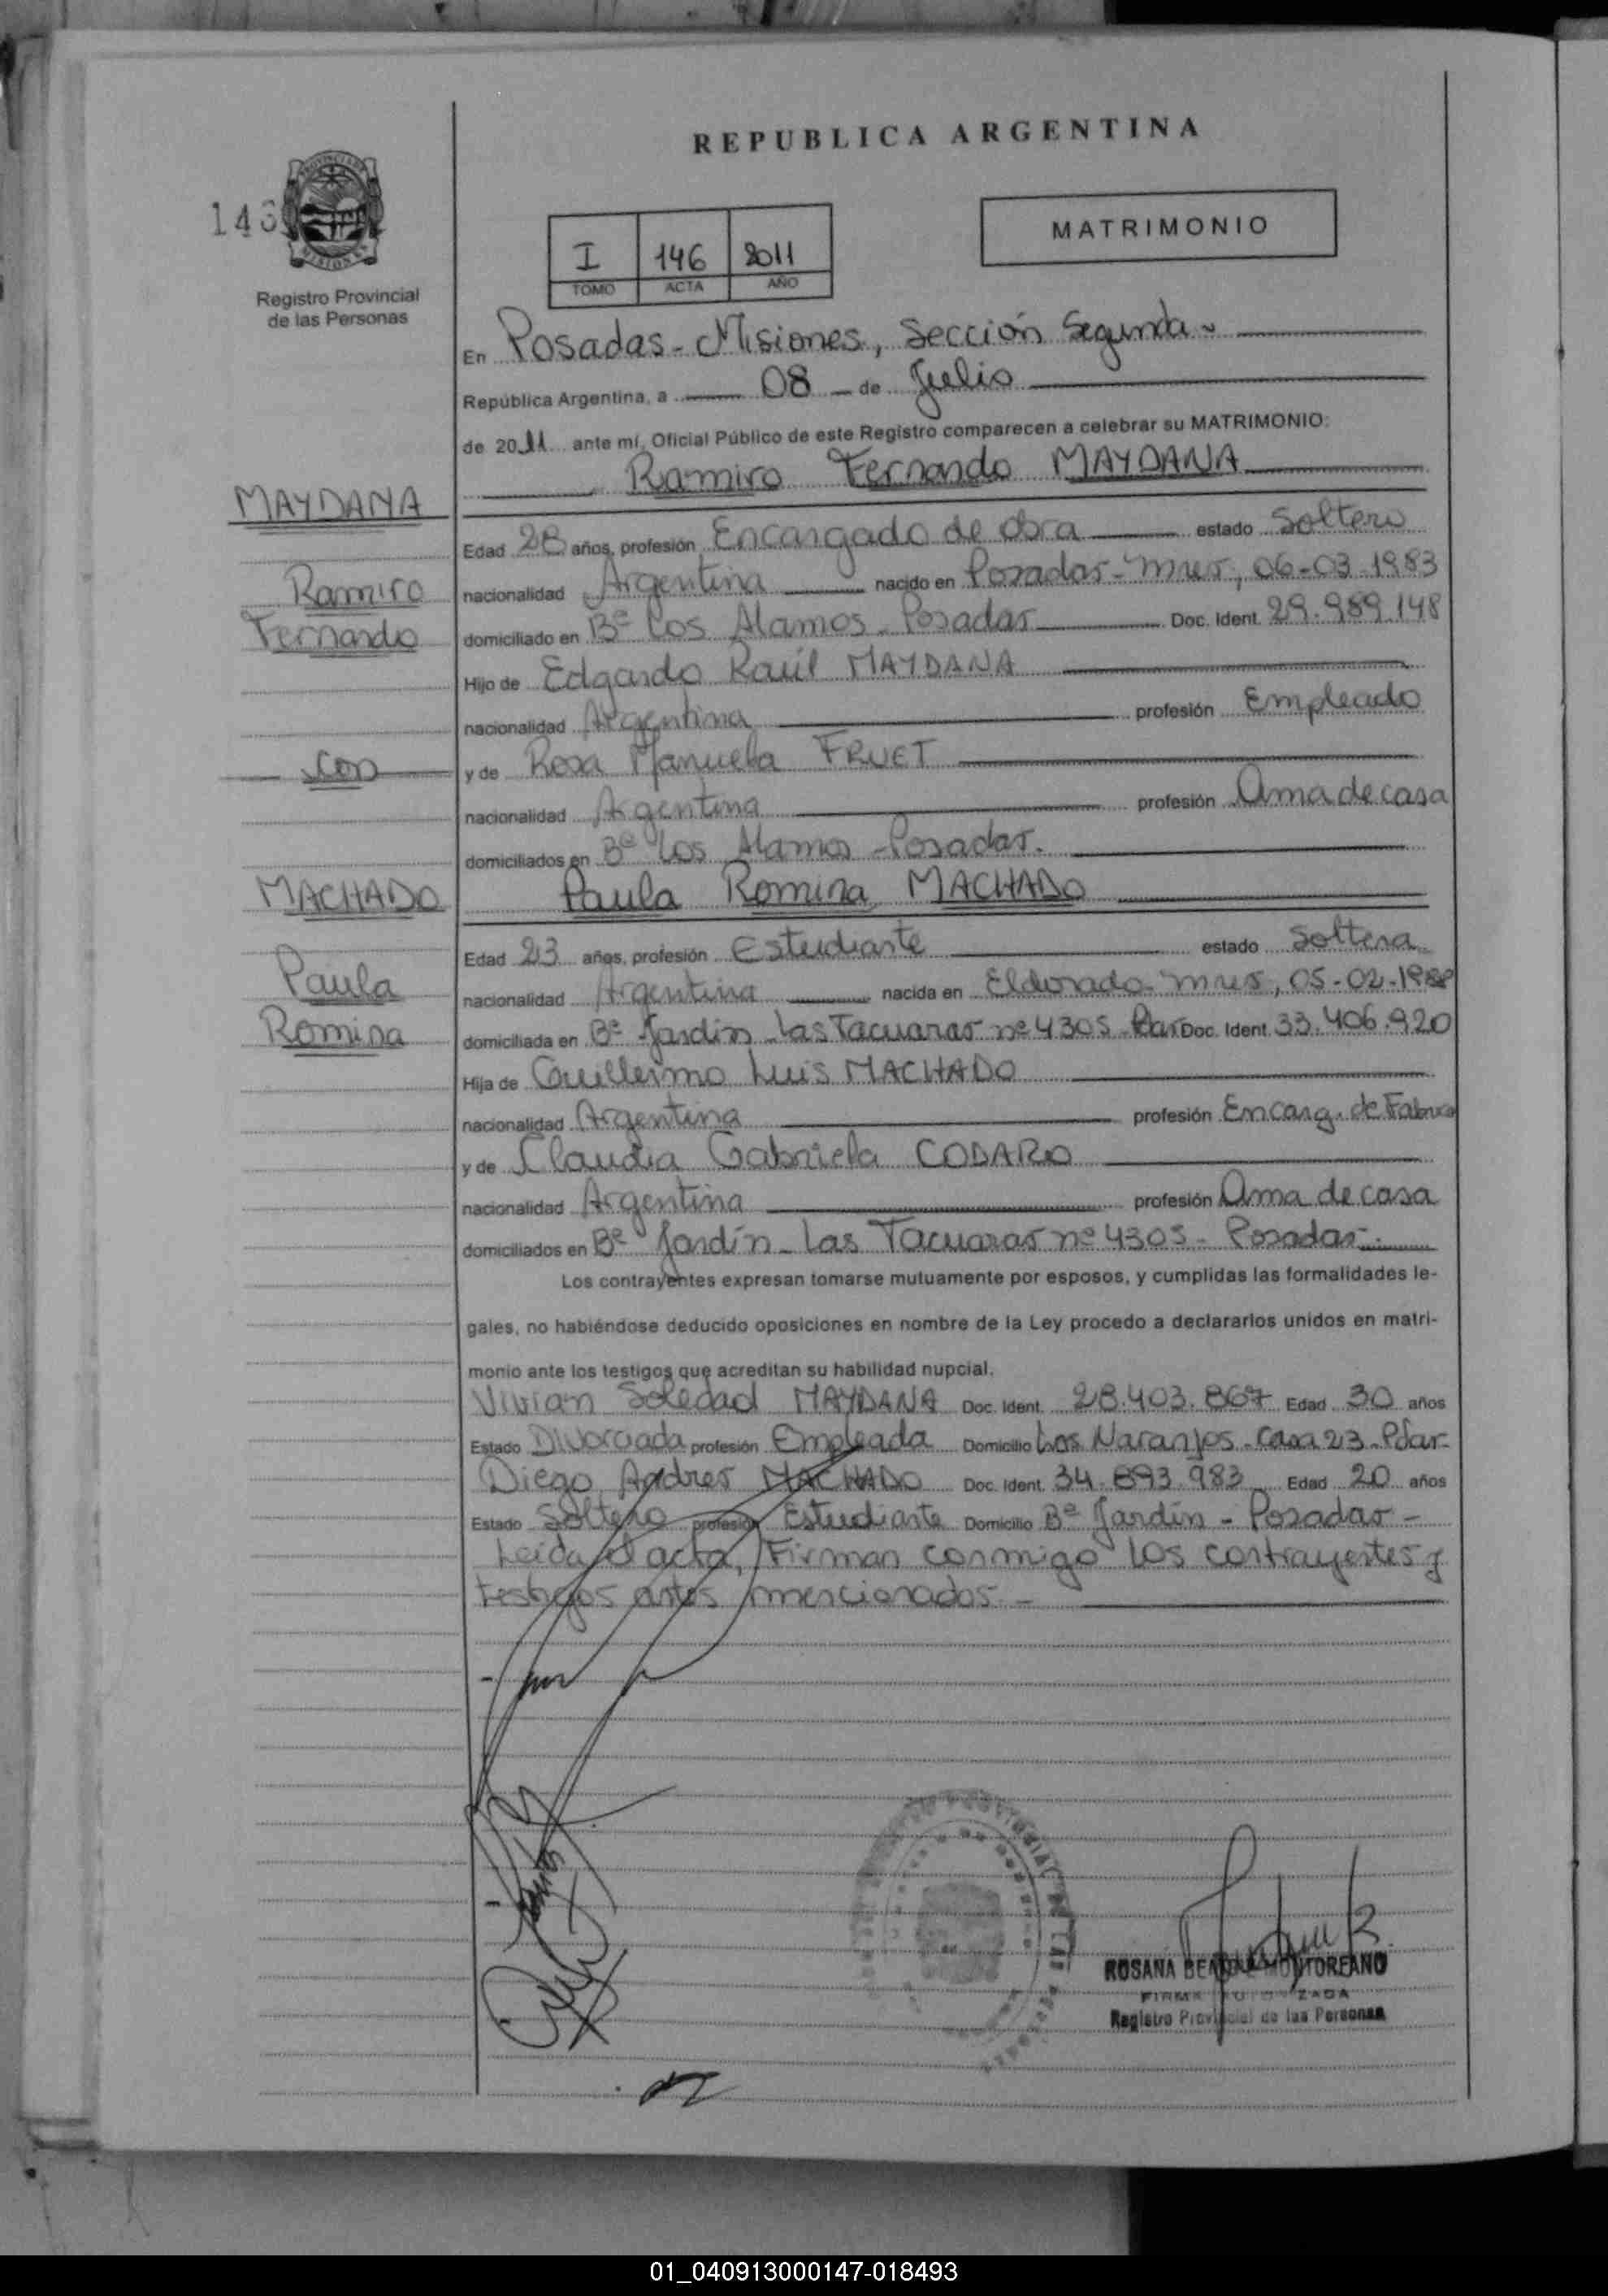 REPUBLICA ARGENTINA
MATRIMONIO
146
I 146 2011
TOMO ACTA AÑO
Registro Provincial
de las Personas
En Posadas - Misiones, Sección Segunda
República Argentina, a 08 de Julio
de 2011 ante mí, Oficial Público de este Registro comparecen a celebrar su MATRIMONIO:
Ramiro Fernando MAYDANA
MAYDANA
Ramiro
Fernando
con
MACHADO
Paula
Romina
Edad 28 años, profesión Encargado de obra estado Soltero
nacionalidad Argentina nacido en Posadas - Mnes, 06-03-1983
domiciliado en Bº Los Alamos - Posadas Doc. Ident. 29.989.148
Hijo de Edgardo Raúl MAYDANA
nacionalidad Argentina profesión Empleado
y de Rosa Manuela FRUET
nacionalidad Argentina profesión Ama de casa
domiciliados en Bº Los Alamos - Posadas.
Paula Romina MACHADO
Edad 23 años, profesión Estudiante estado Soltera
nacionalidad Argentina nacida en Eldorado - Mnes, 05-02-1988
domiciliada en Bº Jardín - Las Tacuaras nº 4305 - Doc. Ident. 33.406.920
Hija de Guillermo Luis MACHADO
nacionalidad Argentina profesión Encarg. de Fabrica
y de Claudia Gabriela CODARO
nacionalidad Argentina profesión Ama de casa
domiciliados en Bº Jardín - Las Tacuaras nº 4305 - Posadas -.
Los contrayentes expresan tomarse mutuamente por esposos, y cumplidas las formalidades le-
gales, no habiéndose deducido oposiciones en nombre de la Ley procedo a declararlos unidos en matri-
monio ante los testigos que acreditan su habilidad nupcial.
Vivian Soledad MAYDANA Doc. Ident. 28.403.867 Edad 30 años
Estado Divorciada profesión Empleada Domicilio Los Naranjos - casa 23 - Pdas -
Diego Andres MACHADO Doc. Ident. 34.893.983 Edad 20 años
Estado Soltero profesión Estudiante Domicilio Bº Jardín - Posadas -
Leída el acta, Firman conmigo los contrayentes y
testigos antes mencionados. -
ROSANA BEATRIZ MONTOREANO
FIRMA AUTORIZADA
Registro Provincial de las Personas
01_040913000147-018493